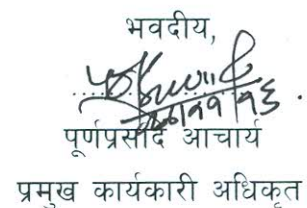 भवदीय,
पूर्णप्रसाद आचार्य
प्रमुख कार्यकारी अधिकृत